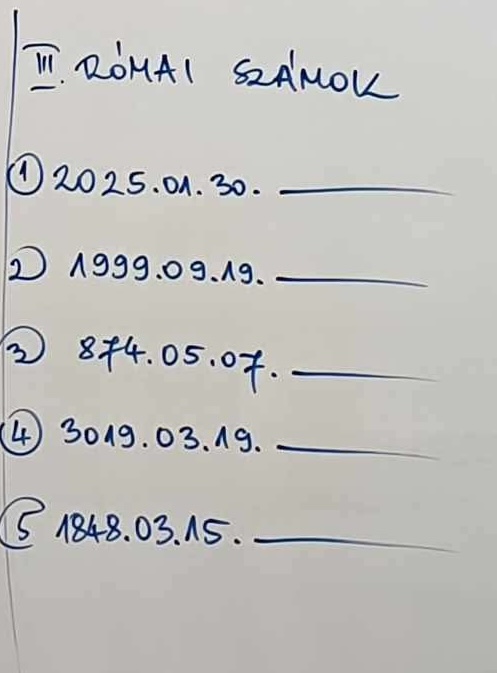 III. RÓMAI SZÁMOK
① 2025.01.30. ________
② 1999.09.19. ________
③ 874.05.07. ________
④ 3019.03.19. ________
⑤ 1848.03.15. ________